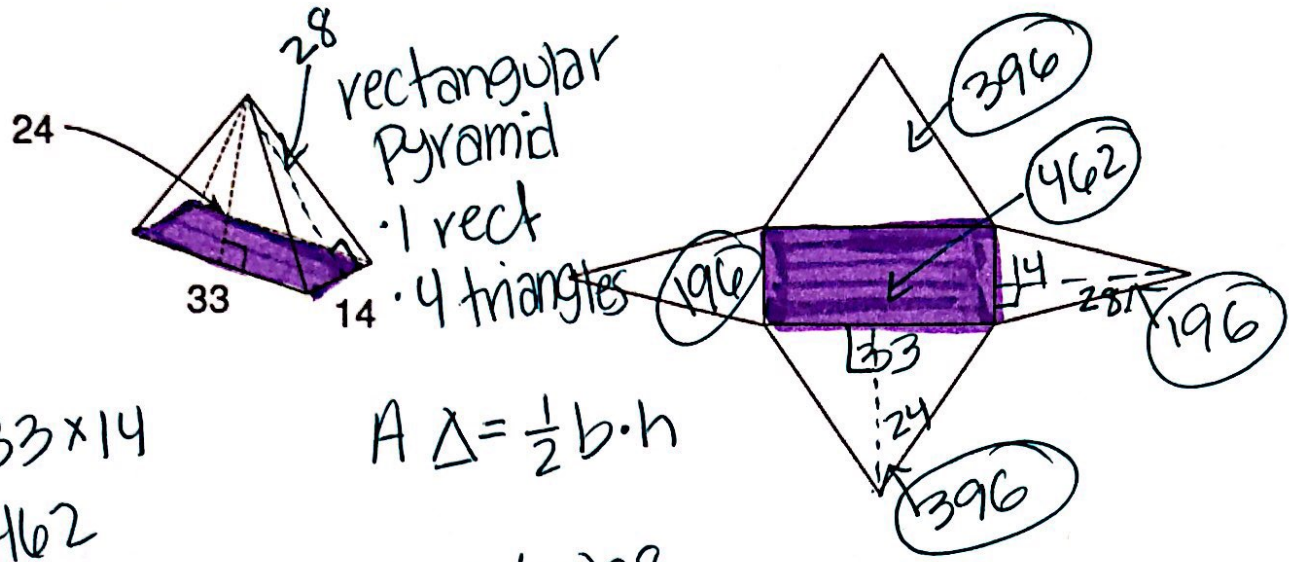 28
24
rectangular
pyramid
· 1 rect
· 4 triangles
33
14
396
462
196
14
28
196
33
24
396
33 × 14
462
A △ = 1/2 b · h